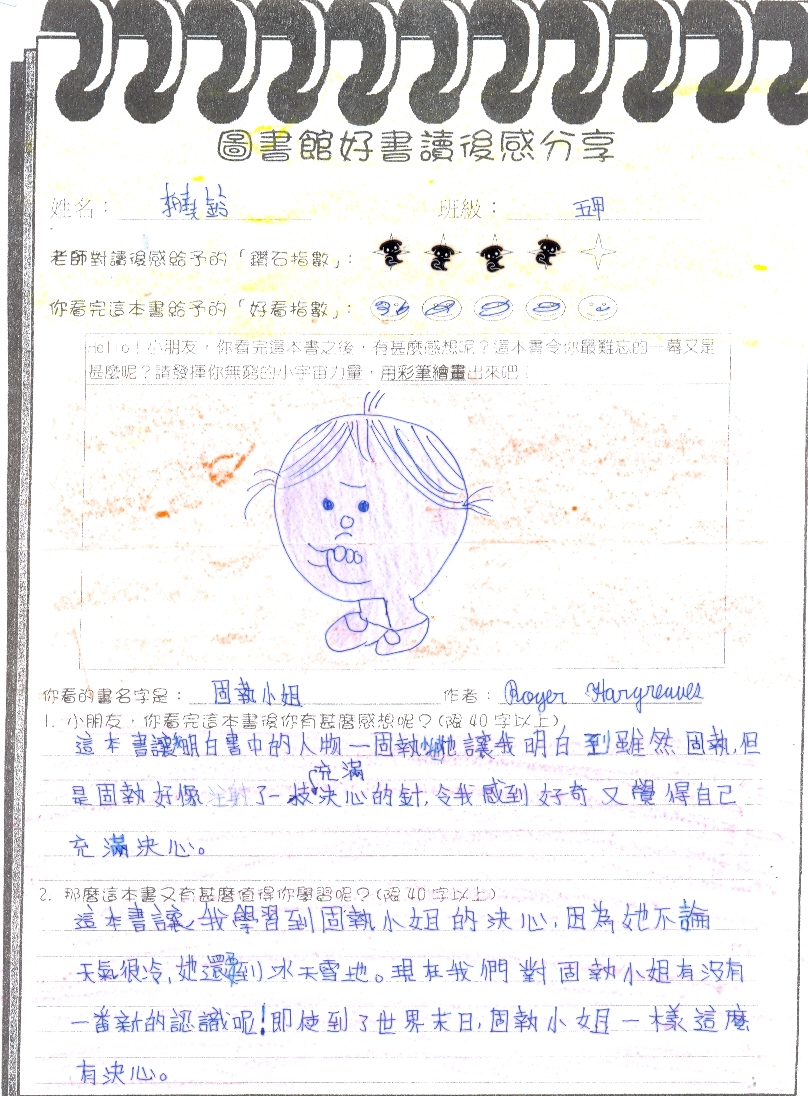 圖書館好書讀後感分享
姓名： 班級： 五甲
老師對讀後感給予的「鑽石指數」：
你看完這本書給予的「好看指數」：
Hello！小朋友，你看完這本書之後，有甚麼感想呢？這本書令你最難忘的一幕又是
甚麼呢？請發揮你無窮的小宇宙力量，用彩筆繪畫出來吧！
你看的書名字是： 固執小姐 作者： Roger Hargreaves
1. 小朋友，你看完這本書後你有甚麼感想呢？(限40字以上)
這本書讓明白書中的人物一固執她讓我明白到雖然固執，但
充滿
是固執好像注射了一枝決心的針，令我感到好奇又覺得自己
充滿決心。
2. 那麼這本書又有甚麼值得你學習呢？(限40字以上)
這本書讓我學習到固執小姐的決心，因為她不論
天氣很冷，她還到冰天雪地。現在我們對固執小姐有沒有
一番新的認識呢！即使到了世界末日，固執小姐一樣這麼
有決心。